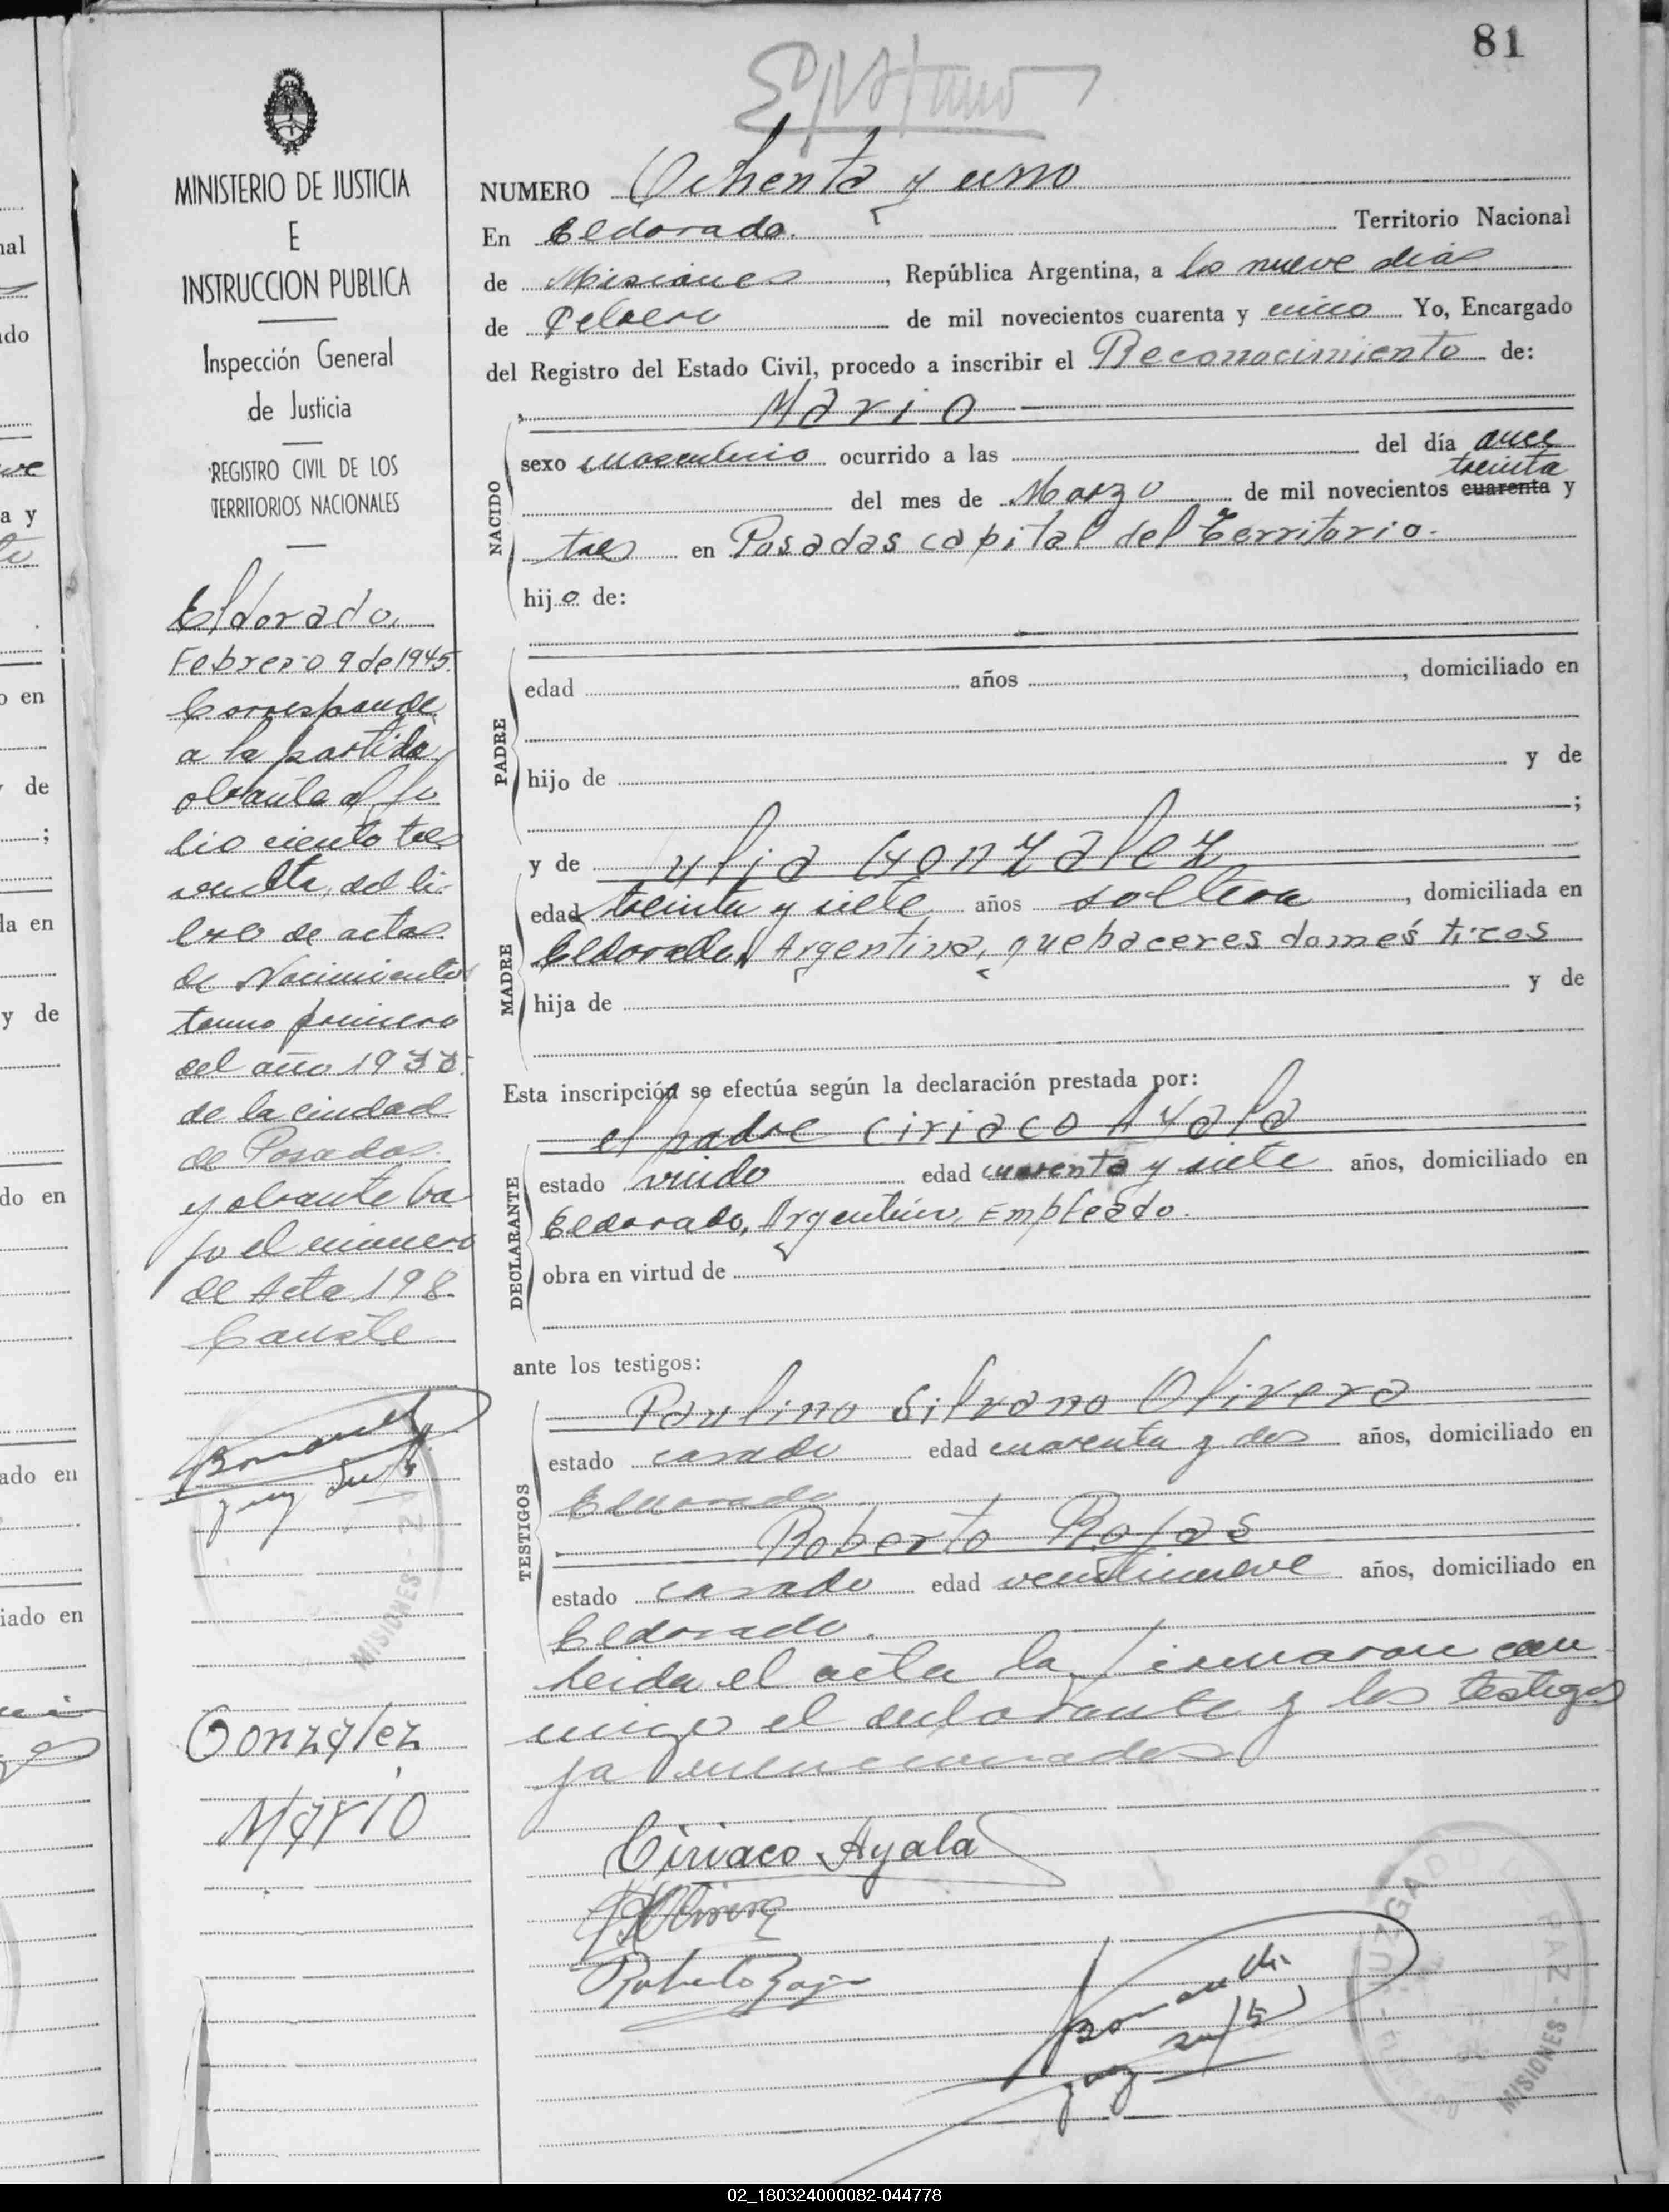 81
NUMERO Ochenta y uno
En Eldorado. Territorio Nacional
de Misiones, República Argentina, a los nueve días
de Febrero de mil novecientos cuarenta y cinco Yo, Encargado
del Registro del Estado Civil, procedo a inscribir el Reconocimiento de:
Mario
NACIDO
sexo masculino ocurrido a las del día once
del mes de Marzo de mil novecientos cuarenta treinta y
tres en Posadas capital del Territorio.
hijo de:
PADRE
edad años , domiciliado en
hijo de y de
;
MADRE
y de ulia Gonzalez
edad treinta y siete años soltera, domiciliada en
Eldorado, Argentina, quehaceres domésticos
hija de y de
Esta inscripción se efectúa según la declaración prestada por:
el padre Ciriaco Ayala
DECLARANTE
estado viudo edad cuarenta y siete años, domiciliado en
Eldorado, Argentino, Empleado.
obra en virtud de
ante los testigos:
TESTIGOS
Paulino Silvano Olivera
estado casado edad cuarenta y dos años, domiciliado en
Eldorado
Roberto Rojas
estado casado edad veintinueve años, domiciliado en
Eldorado.
Leida el acta la firmaron con
migo el declarante y los testigos
ya mencionados
Ciriaco Ayala
Olivera
Roberto Rojas
juez sup
JUZGADO DE PAZ - MISIONES
MINISTERIO DE JUSTICIA
E
INSTRUCCION PUBLICA
Inspección General
de Justicia
REGISTRO CIVIL DE LOS
TERRITORIOS NACIONALES
Eldorado,
Febrero 9 de 1945.
Corresponde
a la partida
obrante al fo
lio ciento tres
vuelta, del li-
bro de actas
de Nacimientos
tomo primero
del año 1933.
de la ciudad
de Posadas.
y obrante ba
jo el número
de Acta 198.
Conste
juez Sup
MISIONES
González
Mario
02_180324000082-044778